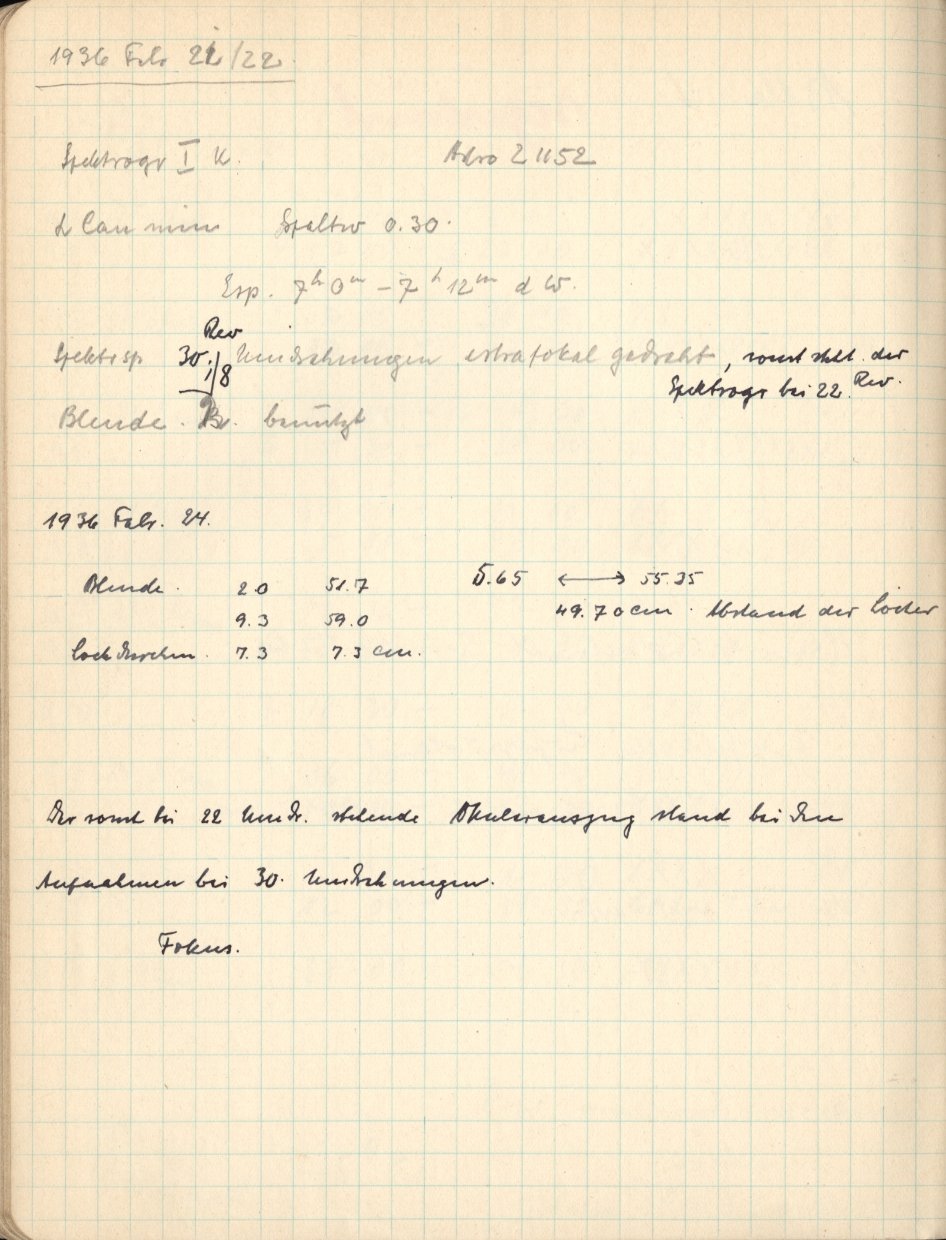 1936 Feb 21/22
Spektrogr I K. Astro Z 1152
α Can min Spaltw 0.30.
Exp. 7h 0m – 7h 12m d W.
Rev
Spektrogr 30. Umdrehungen extrafokal gedreht, sonst steht der
1/8 Spektrogr bei 22. Rev.
Blende. benützt
1936 Febr. 24.
Blende. 2.0 51.7 5.65 ⟷ 55.35
9.3 59.0 49.70 cm. Abstand der Löcher
Lochdurchm. 7.3 7.3 cm.
Der sonst bei 22 Umdr. stehende Okularauszug stand bei den
Aufnahmen bei 30. Umdrehungen.
Fokus.